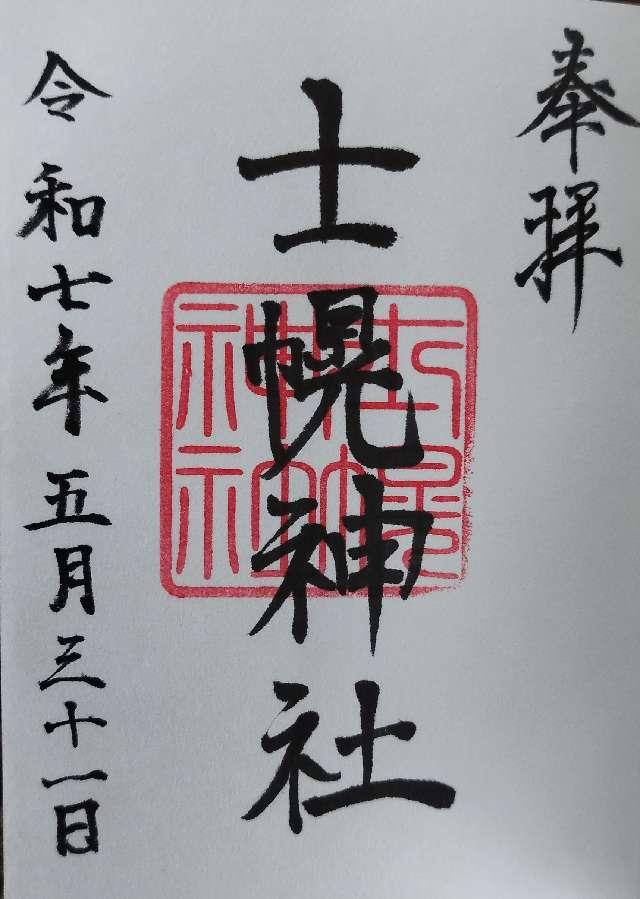 奉拝
士幌神社
士幌
神社
令和七年五月三十一日